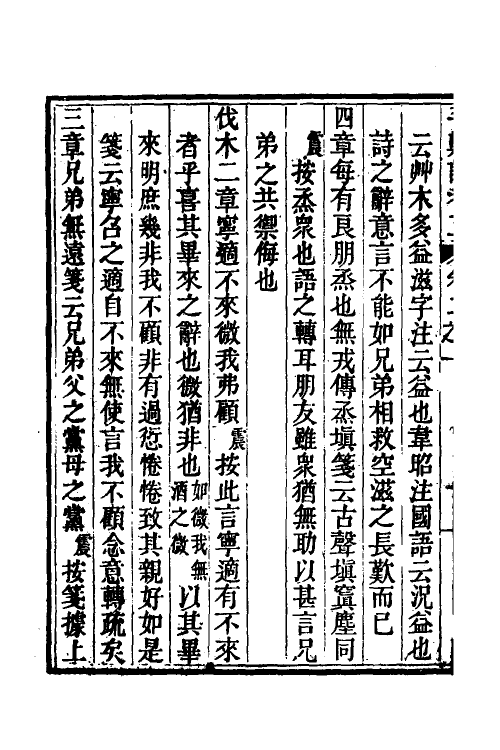 云艸木多益滋字注云益也韋昭注國語云況益也
詩之辭意言不能如兄弟相救空滋之長歎而已
四章每有良朋烝也無戎傳烝塡箋云古聲塡寘塵同
震按烝衆也語之轉耳朋友雖衆猶無助以甚言兄
弟之共禦侮也
伐木二章寧適不來微我弗顧震按此言寧適有不來
者乎喜其畢來之辭也微猶非也如微我無酒之微以其畢
來明庶幾非我不顧非有過愆惓惓致其親好如是
箋云寧召之適自不來無使言我不顧念意轉疏矣
三章兄弟無遠箋云兄弟父之黨母之黨震按箋據上